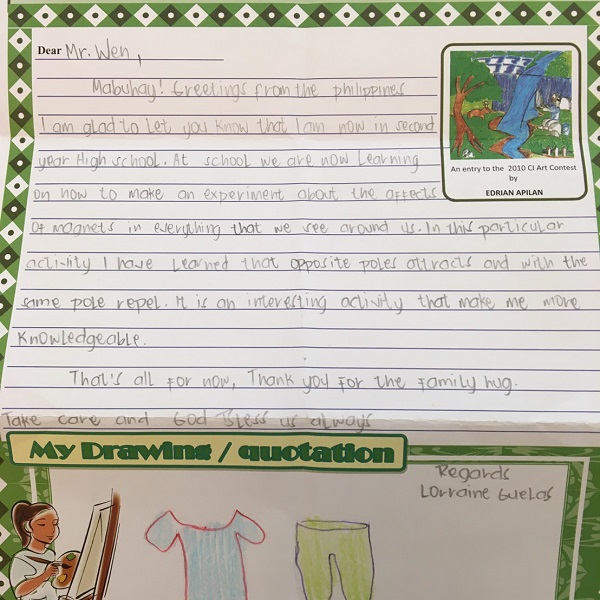 Dear Mr. Wen,
Mabuhay! Greetings from the philippines
I am glad to Let you know that I am now in second
year High school. At school we are now Learning
on how to make an experiment about the affects
Of magnets in everything that we see around us. In this particular
activity I have Learned that opposite poles attracts and with the
same pole repel. It is an interesting activity that make me more
Knowledgeable.
That's all for now, Thank you For the Family hug.
Take care and God Bless us always
An entry to the 2010 CI Art Contest
by
EDRIAN APILAN
My Drawing / quotation
Regards
Lorraine Guelas